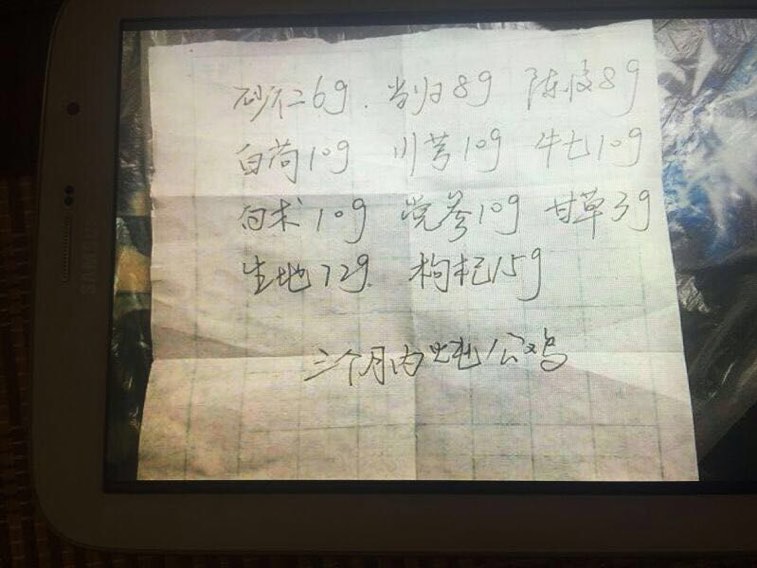 砂仁6g. 当归8g 陈皮8g
白苟10g 川芎10g 牛七10g
白术10g 党参10g 甘草3g
生地12g. 枸杞15g
三个月内炖公鸡
SAMSUNG